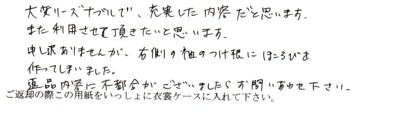 大変リーズナブルで、充実した内容だと思います。
また利用させて頂きたいと思います。
申し訳ありませんが、右側の袖のつけ根にほころびを
作ってしまいました。
返品内容に不都合がございましたらお問いあわせ下さい。
ご返却の際この用紙をいっしょに衣裳ケースに入れて下さい。